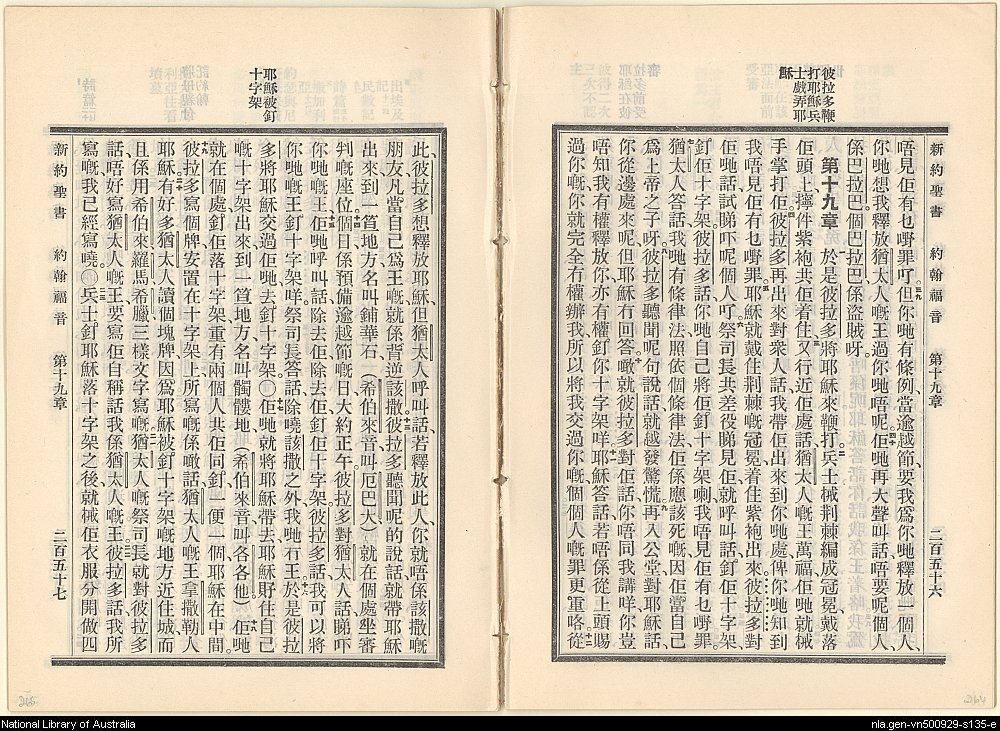 彼拉多鞭
打耶穌兵
士戲弄耶
穌
新約聖書 約翰福音 第十九章 二百五十六
唔見佢有乜嘢罪吖但你哋有條例當逾越節要我為你哋釋放一個人、
你哋想我釋放猶太人嘅王過你哋唔呢佢哋再大聲叫話唔要呢個人、
係巴拉巴個巴拉巴係盜賊呀。
第十九章 於是彼拉多將耶穌來鞭打兵士械荊棘編成冠冕戴落
佢頭上攞件紫袍共佢着住又行近佢處話猶太人嘅王萬福佢哋就械
手掌打佢彼拉多再出來對衆人話我帶佢出來到你哋處俾你哋知到
我唔見佢有乜嘢罪耶穌就戴住荊棘嘅冠冕着住紫袍出來彼拉多對
佢哋話試睇吓呢個人吖祭司長共差役睇見佢就呼叫話釘佢十字架
釘佢十字架彼拉多話你哋自己將佢釘十字架喇我唔見佢有乜嘢罪
猶太人答話我哋有條律法照依個條律法佢係應該死嘅因佢當自己
為上帝之子呀彼拉多聽聞呢句說話就越發驚慌再入公堂對耶穌話、
你從邊處來呢但耶穌冇回答噉就彼拉多對佢話你唔同我講咩你豈
唔知我有權釋放你亦有權釘你十字架咩耶穌答話若唔係從上頭賜
過你嘅你就完全冇權辦我所以將我交過你嘅個個人嘅罪更重咯從
耶穌被釘
十字架
此彼拉多想釋放耶穌但猶太人呼叫話若釋放此人你就唔係該撒嘅
朋友凡當自己為王嘅就係背逆該撒彼拉多聽聞呢的說話就帶耶穌
出來到一笪地方名叫鋪華石（希伯來音叫厄巴大）就在個處坐審
判嘅座位個日係預備逾越節嘅日大約正午彼拉多對猶太人話睇吓
你哋嘅王佢哋呼叫話除去佢除去佢釘佢十字架彼拉多話我可以將
你哋嘅王釘十字架咩祭司長答話除曉該撒之外我哋冇王於是彼拉
多將耶穌交過佢哋去釘十字架○佢哋就將耶穌帶去耶穌孭住自己
嘅十字架出來到一笪地方名叫髑髏地（希伯來音叫各各他）佢哋
就在個處釘佢落十字架重有兩個人共佢同釘一便一個耶穌在中間。
彼拉多寫個牌安置在十字架上所寫嘅係噉話猶太人嘅王拿撒勒人
耶穌有好多猶太人讀個塊牌因為耶穌被釘十字架嘅地方近住城而
且係用希伯來羅馬希臘三樣文字寫嘅猶太人嘅祭司長就對彼拉多
話唔好寫猶太人嘅王要寫佢自稱話我係猶太人王嘅彼拉多話我所
寫嘅我已經寫嘵○兵士釘耶穌落十字架之後就械佢衣服分開做四
新約聖書 約翰福音 第十九章 二百五十七
265
264
National Library of Australia
nla.gen-vn500929-s135-e